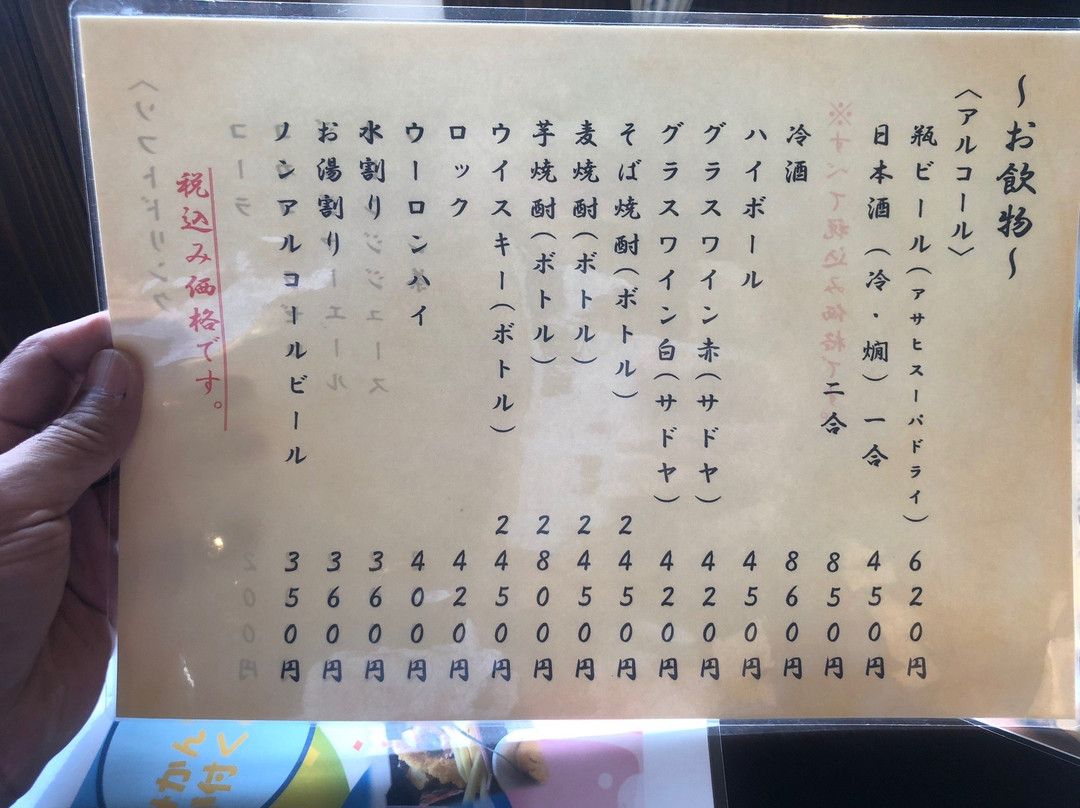 ～お飲物～
〈アルコール〉
瓶ビール（アサヒスーパドライ）620円
日本酒（冷・燗）一合 450円
二合 850円
冷酒 860円
ハイボール 450円
グラスワイン赤（サドヤ）420円
グラスワイン白（サドヤ）420円
そば焼酎（ボトル）2450円
麦焼酎（ボトル）2450円
芋焼酎（ボトル）2800円
ウイスキー（ボトル）2450円
ロック 420円
ウーロンハイ 400円
水割り 360円
お湯割り 360円
ノンアルコールビール 350円
税込み価格です。
※すべて税込み価格です
〈ソフトドリンク
コーラ 200円
ジンジャーエール
ジュース
かん
付く